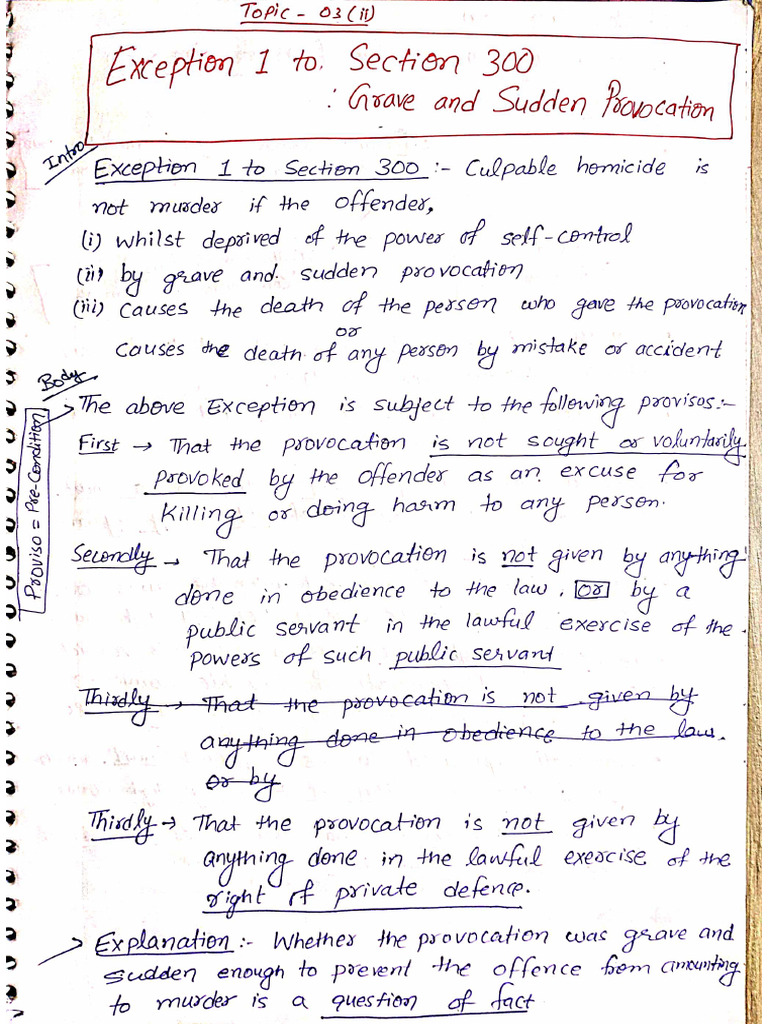 Topic - 03(ii)
Exception 1 to Section 300
: Grave and Sudden Provocation
Intro
Exception 1 to Section 300 :- Culpable homicide is
not murder if the offender,
(i) whilst deprived of the power of self-control
(ii) by grave and sudden provocation
(iii) causes the death of the person who gave the provocation
or
causes the death of any person by mistake or accident
Body
Proviso = Pre-Condition
The above Exception is subject to the following provisos:-
First → That the provocation is not sought or voluntarily
provoked by the offender as an excuse for
killing or doing harm to any person.
Secondly → That the provocation is not given by anything
done in obedience to the law, or by a
public servant in the lawful exercise of the
powers of such public servant
Thirdly → That the provocation is not given by
anything done in obedience to the law.
or by
Thirdly → That the provocation is not given by
anything done in the lawful exercise of the
right of private defence.
→ Explanation :- Whether the provocation was grave and
sudden enough to prevent the offence from amounting
to murder is a question of fact